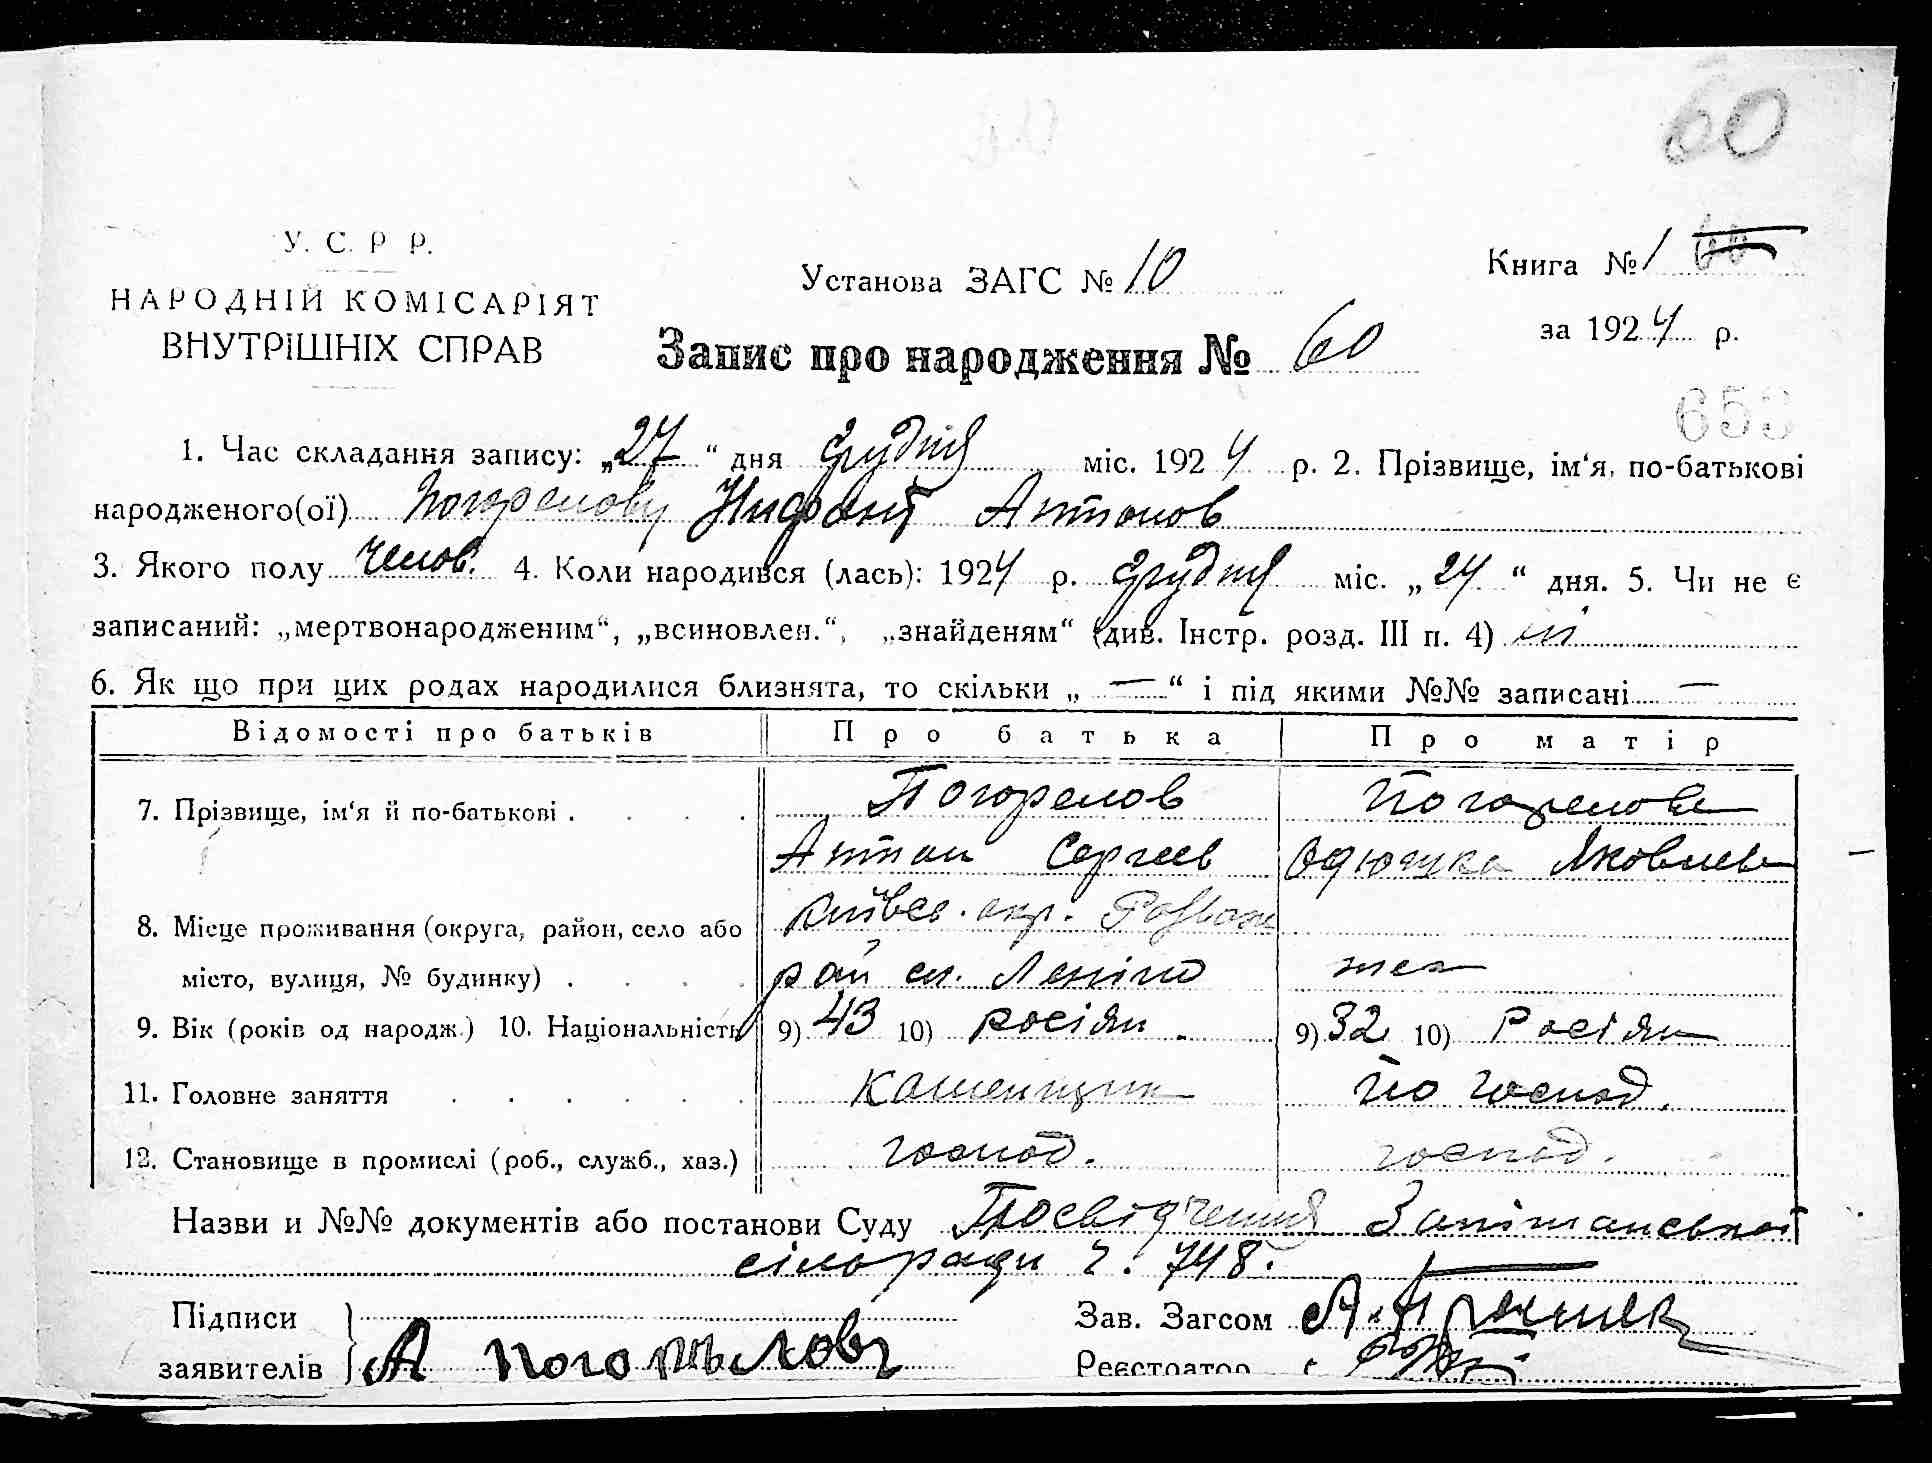 60
У. С. Р Р.
НАРОДНІЙ КОМІСАРІЯТ
ВНУТРІШНІХ СПРАВ
Установа ЗАГС № 10
Книга № 1 60
за 1924 р.
Запис про народження № 60
653
1. Час складання запису: „27“ дня Грудня міс. 1924 р. 2. Прізвище, ім‘я, по-батькові
народженого(ої) Погорелову Нифонт Антонов
3. Якого полу челов. 4. Коли народився (лась): 1924 р. Грудня міс. „24“ дня. 5. Чи не є
записаний: „мертвонародженим“, „всиновлен.“, „знайденям“ (див. Інстр. розд. III п. 4) ні
6. Як що при цих родах народилися близнята, то скільки „ — “ і під якими №№ записані —
Відомості про батьків Про батька Про матір
7. Прізвище, ім‘я й по-батькові . Погорелов Погорелова
Антон Сергеев Яковлев
Київс. окр. Розваж
8. Місце проживання (округа, район, село або
місто, вулиця, № будинку) . рай сл. Леніно теж
9. Вік (років од народж.) 10. Національність 9) 43 10) росіян. 9) 32 10) Росіян
11. Головне заняття Каменщик по господ.
12. Становище в промислі (роб., служб., хаз.) господ. господ.
Назви и №№ документів або постанови Суду Посвідчення
сілоради ч. 748.
Підписи
заявителів А Погорѣловъ
Зав. Загсом
Реєстратор